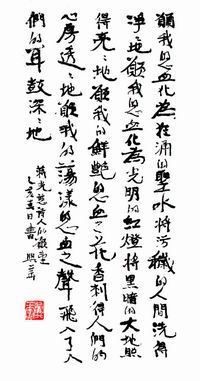 願我血化為狂涌的聖水將污穢的人間洗得
淨々地願我血化為光明的紅燈將黑暗的大地照
得亮々地願我的鮮艷的血之花香刺得人們的
心房透々地願我的蕩漾的血之聲飛入了人
們的耳鼓深々地
蔣光慈詩
日書